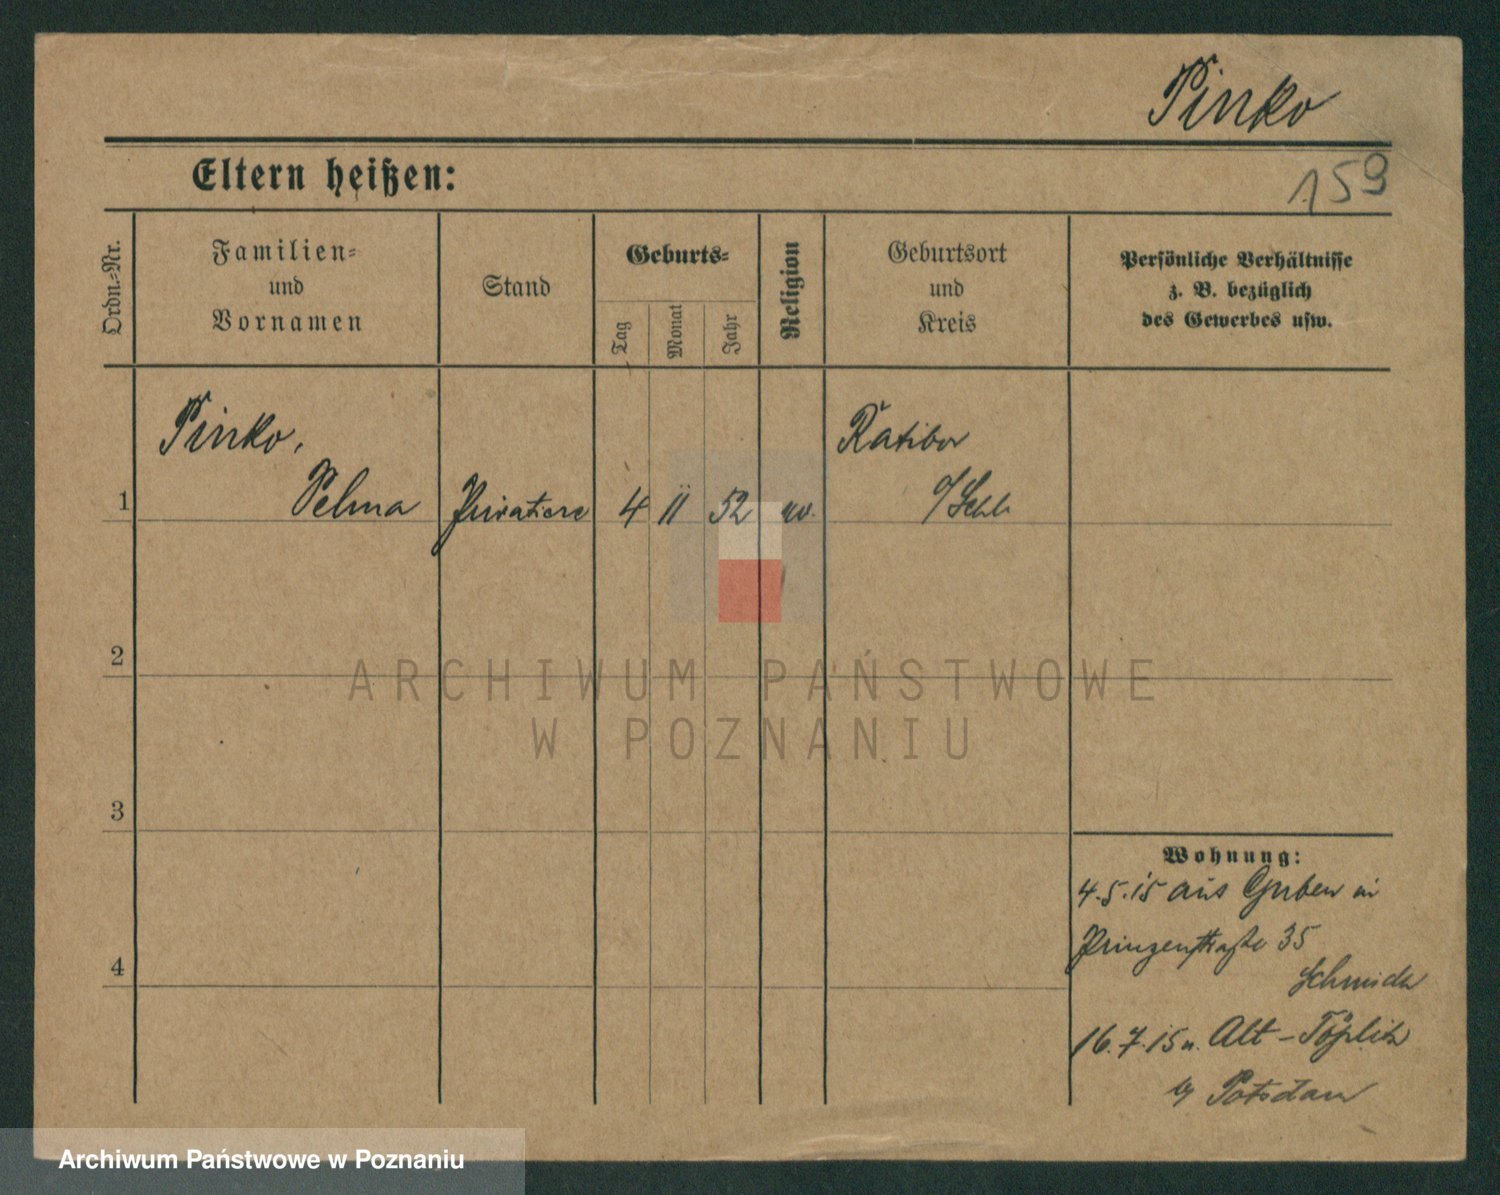 Pinko
Eltern heißen:
159
Ordn.=Nr.
Familien=
und
Vornamen
Stand
Geburts=
Tag
Monat
Jahr
Religion
Geburtsort
und
Kreis
Persönliche Verhältnisse
z. B. bezüglich
des Gewerbes usw.
1
Pinko,
Selma
Privatiere
4
11
52
ev.
Ratibor
/Schl.
2
3
4
Wohnung:
4.5.15 aus Guben in
Prinzenstraße 35
16.7.15 n. Alt-Töplitz
b/ Potsdam
ARCHIWUM PAŃSTWOWE
W POZNANIU
Archiwum Państwowe w Poznaniu